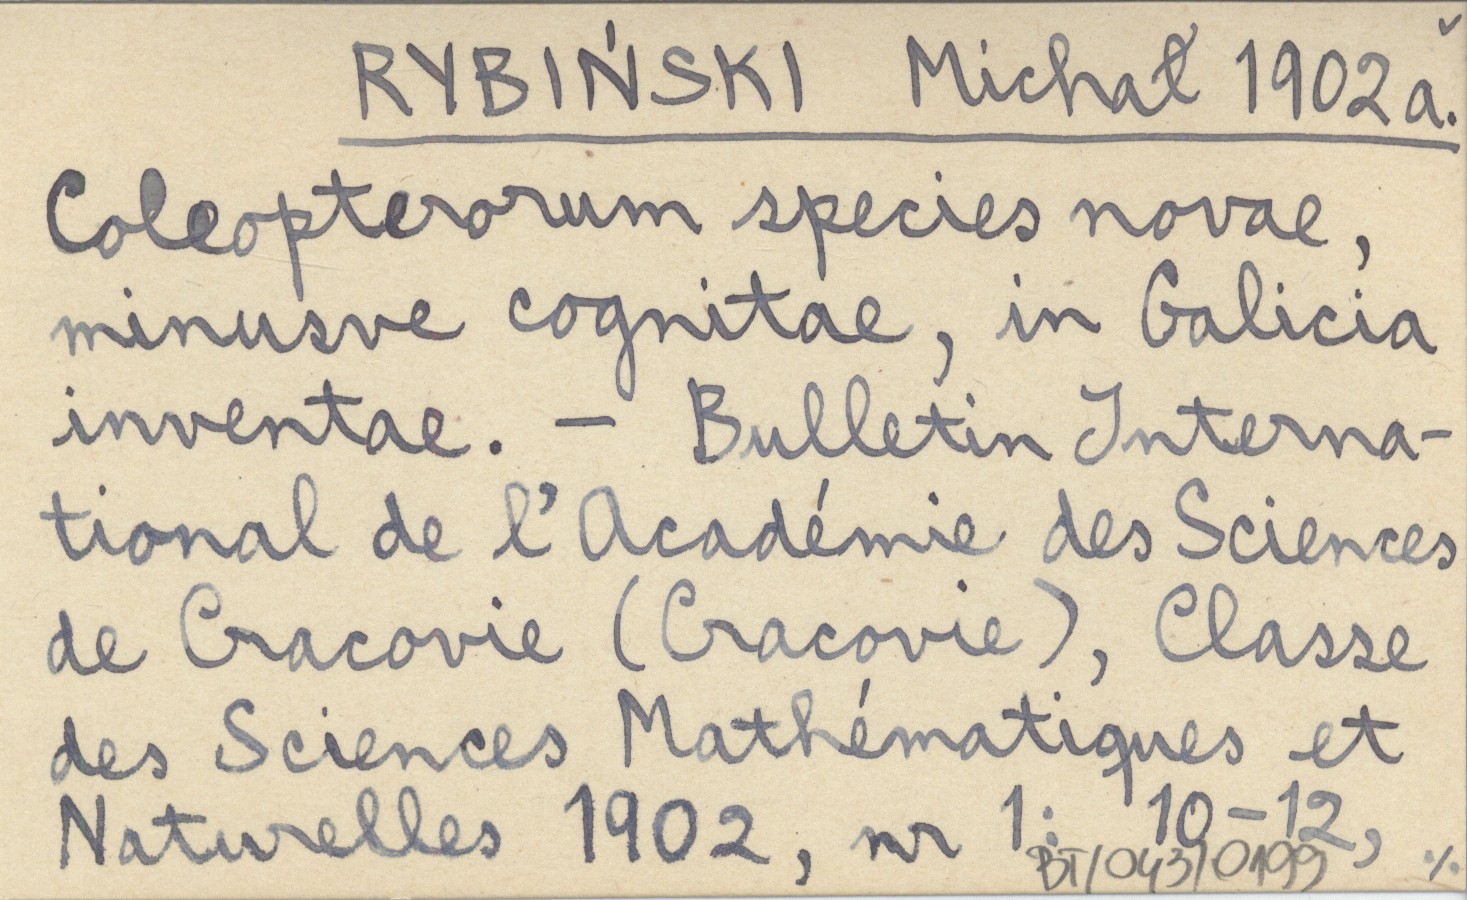 RYBIŃSKI Michał 1902ǎ.
Coleopterorum species novae,
minusve cognitae, in Galicia
inventae. – Bulletin Interna-
tional de l'Académie des Sciences
de Cracovie (Cracovie), Classe
des Sciences Mathématiques et
Naturelles 1902, nr 1: 10–12, ./.
BT/043/0199